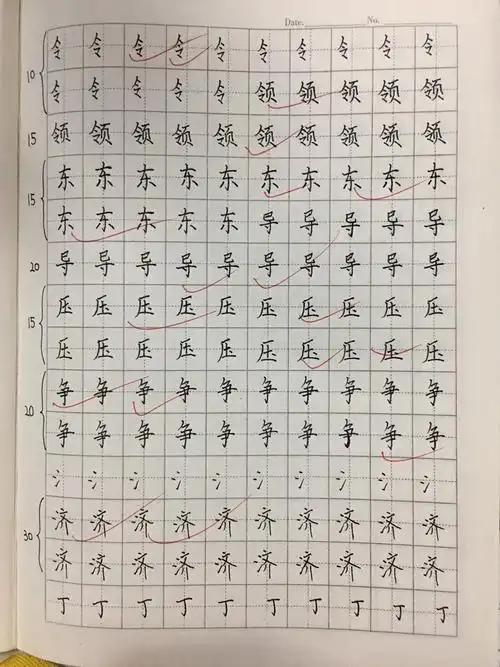 Date. No.
10 令 令 令 令 令 令 令 令 令 令
令 令 令 令 令 领 领 领 领 领
15 领 领 领 领 领 领 领 领 领 领
15 东 东 东 东 东 东 东 东 东 东
东 东 东 东 东 导 导 导 导 导
20 导 导 导 导 导 导 导 导 导 导
15 压 压 压 压 压 压 压 压 压 压
压 压 压 压 压 压 压 压 压 压
20 争 争 争 争 争 争 争 争 争 争
争 争 争 争 争 争 争 争 争 争
氵 氵 氵 氵 氵 氵 氵 氵 氵 氵
30 济 济 济 济 济 济 济 济 济 济
济 济 济 济 济 济 济 济 济 济
丁 丁 丁 丁 丁 丁 丁 丁 丁 丁